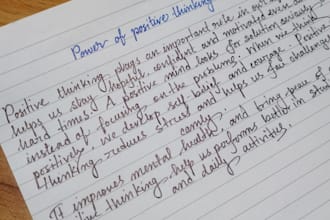 Power of positive thinking
Positive thinking plays an important role in our
helps us stay hopeful, confident and motivated even during
hard times. A positive mind looks for solutions
instead of focusing on the problems. When we think
positively, we develop self belief and courage. Positive
thinking reduces stress and helps us face challenges
calmly.
It improves mental health, and bring peace of
thinking help us performs better in studies
and daily activities.